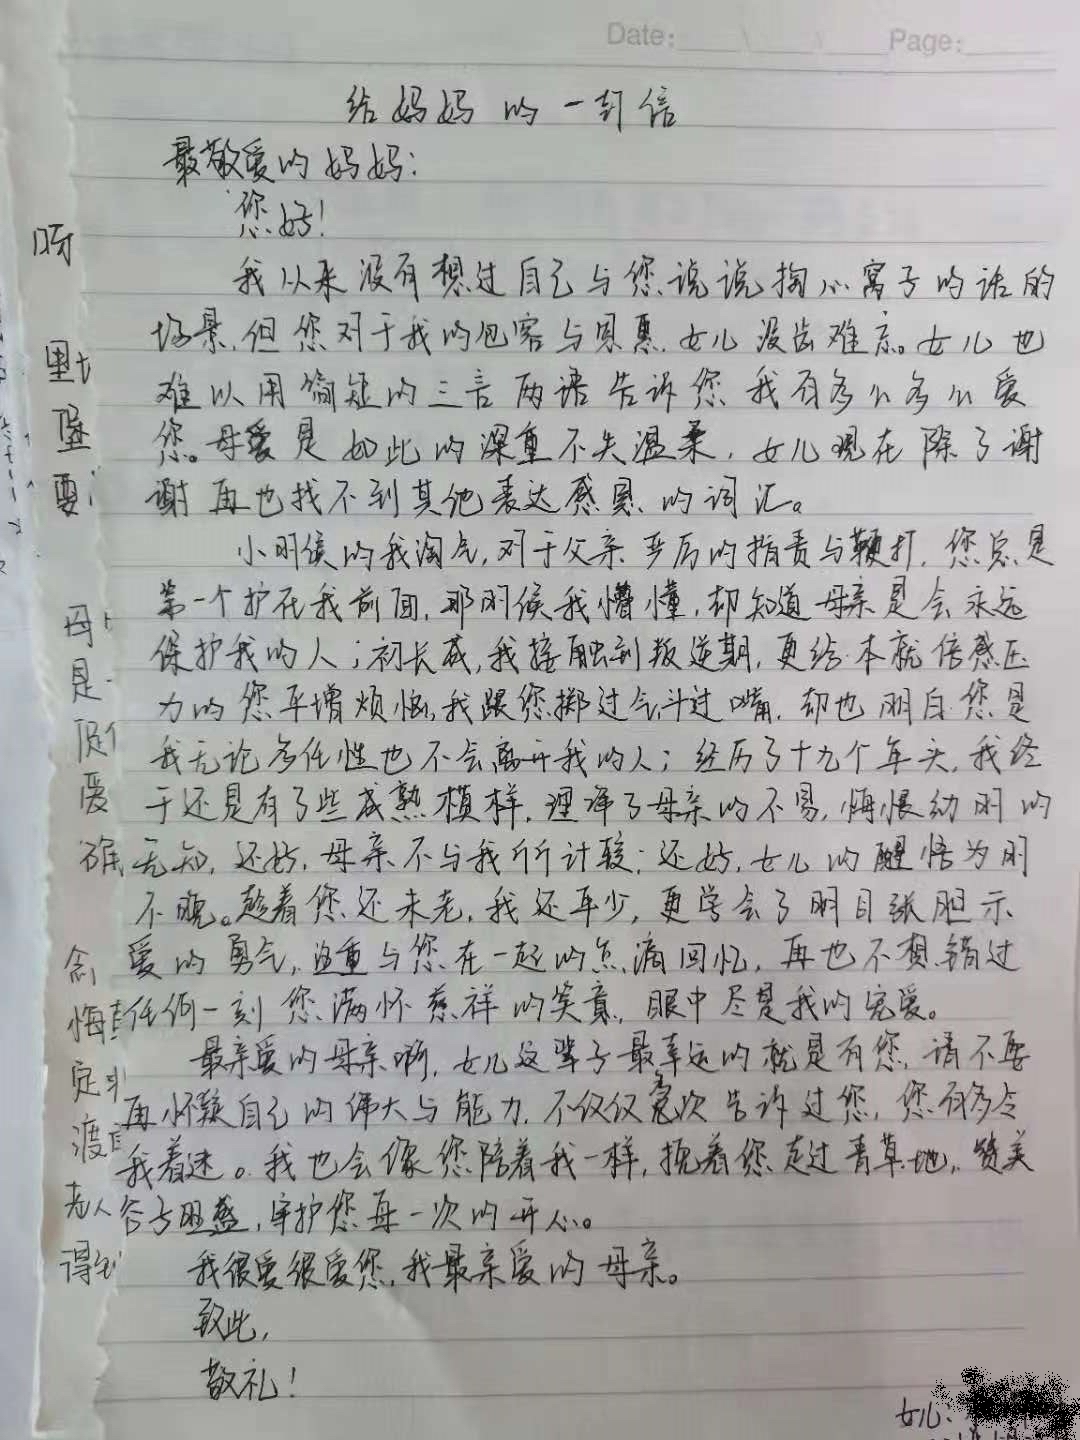 Date: Page:
给妈妈的一封信
最敬爱的妈妈：
您好！
我以来没有想过自己与您说说掏心窝子的话的
场景，但您对于我的包容与恩惠，女儿没齿难忘。女儿也
难以用简短的三言两语告诉您我有多么多么爱
您。母爱是如此的深重不失温柔，女儿现在除了谢
谢再也找不到其他表达感恩的词汇。
小时候的我淘气，对于父亲严厉的指责与鞭打，您总是
第一个护在我前面，那时候我懵懂，却知道母亲是会永远
保护我的人；初长成，我接触到叛逆期，更给本就倍感压
力的您平增烦恼，我跟您掷过气斗过嘴，却也明白您是
我无论多任性也不会离开我的人；经历了十九个年头，我终
于还是有了些成熟模样，理译了母亲的不易，悔恨幼时的
无知，还好，母亲不与我斤斤计较；还好，女儿的醒悟为时
不晚。趁着您还未老，我还年少，更学会了明目张胆示
爱的勇气，追重与您在一起的点滴回忆，再也不想错过
任何一刻您满怀慈祥的笑意，眼中尽是我的宠爱。
最亲爱的母亲啊，女儿这辈子最幸运的就是有您，请不要
再怀疑自己的伟大与能力，不仅仅多次告诉过您，您有多令
我着迷。我也会像您陪着我一样，挽着您走过青草地，赞美
谷子旺盛，守护您每一次的开心。
我很爱很爱您，我最亲爱的母亲。
致此，
敬礼！
女儿：